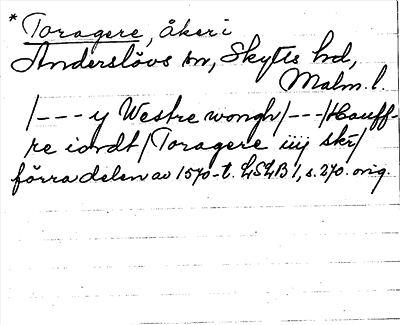 * Toragere, åker i
Anderslövs sn, Skytts hd,
Malm. l.
/--- y Westre wongh/---/Hauff-
re iordt/Toragere iiij skr/
förra delen av 1570-t. LSLB 1, s. 270. orig.